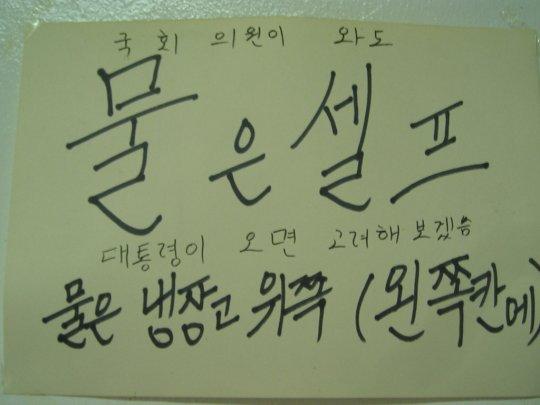 국회 의원이 와도
물은 셀프
대통령이 오면 고려해 보겠음
물은 냉장고 위쪽 (왼쪽칸에)